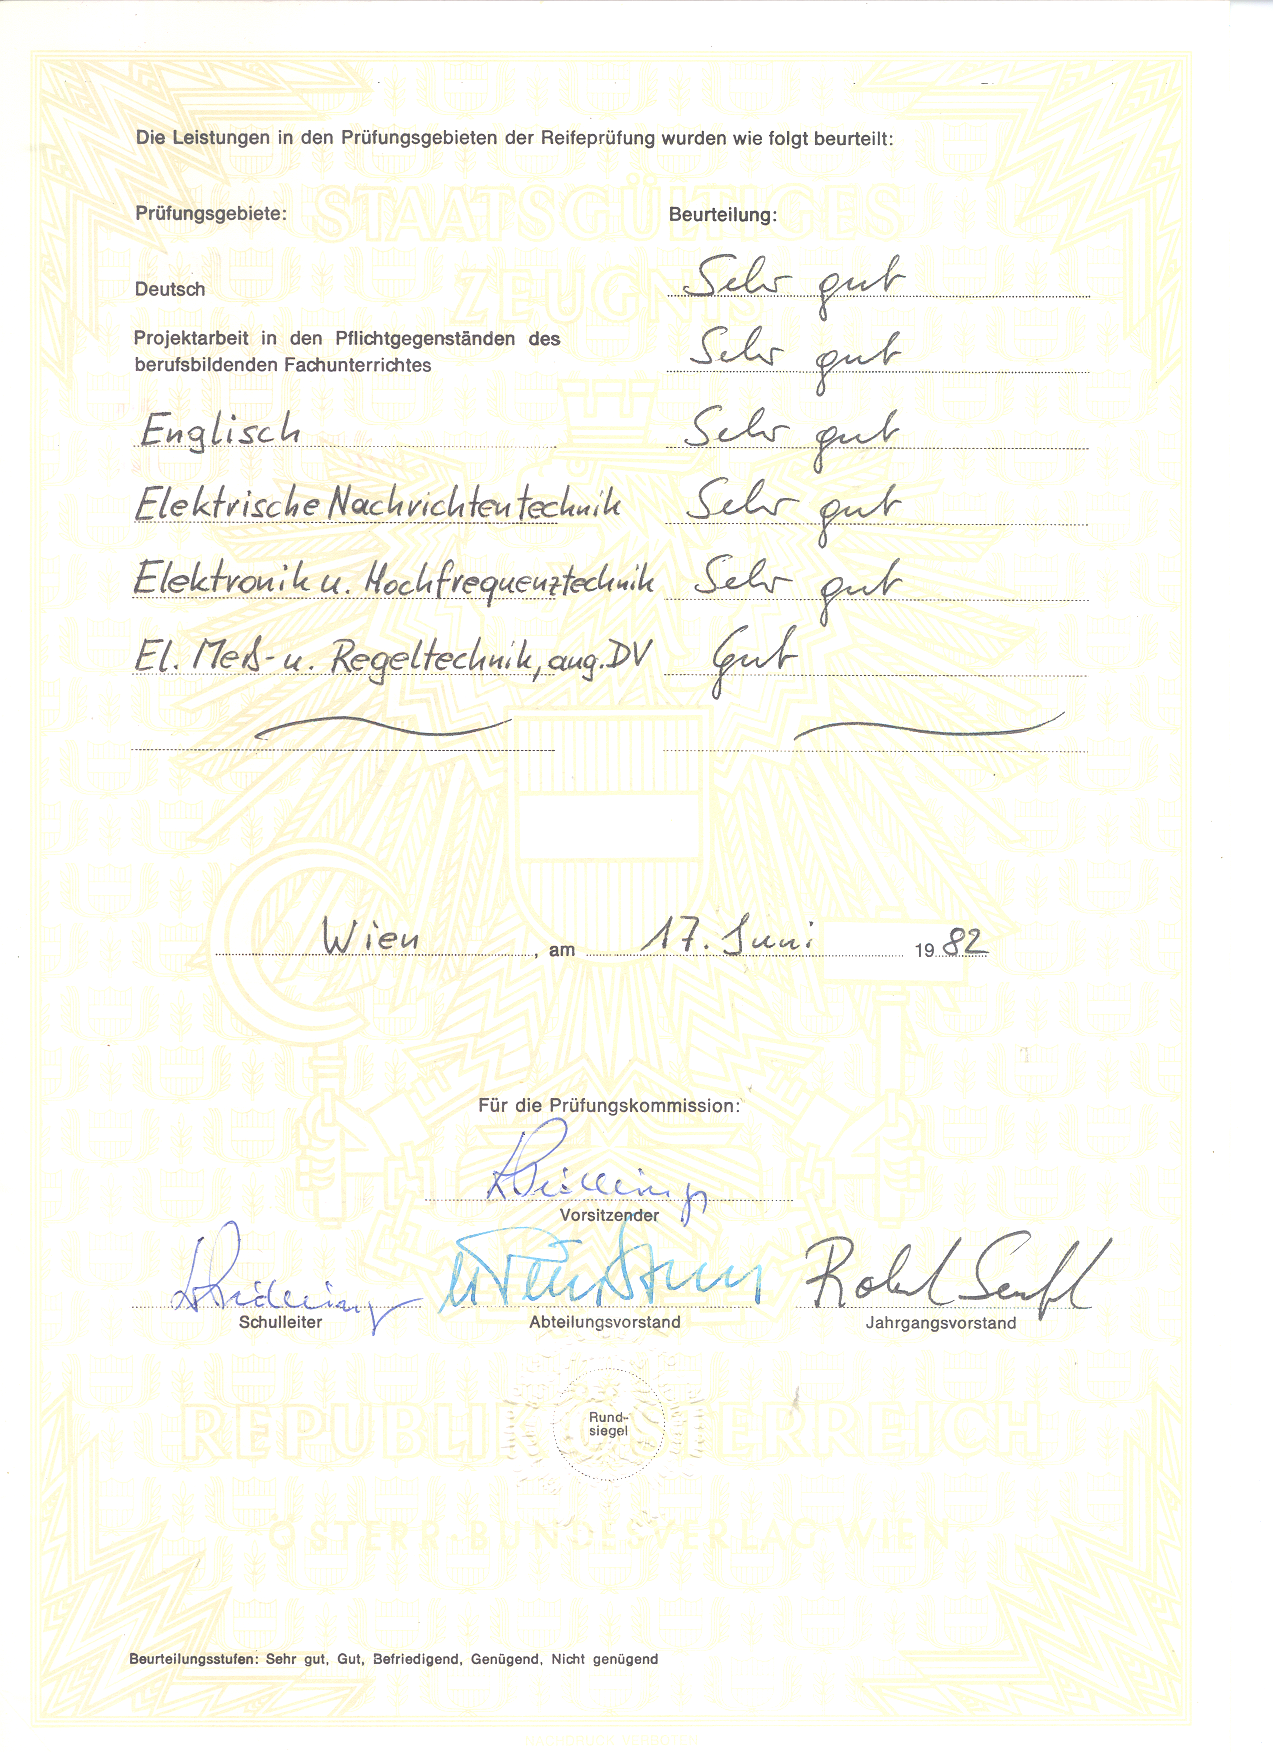 Die Leistungen in den Prüfungsgebieten der Reifeprüfung wurden wie folgt beurteilt:
STAATSGÜLTIGES
Prüfungsgebiete: Beurteilung:
ZEUGNIS
Deutsch Sehr gut
Projektarbeit in den Pflichtgegenständen des
berufsbildenden Fachunterrichtes Sehr gut
Englisch Sehr gut
Elektrische Nachrichtentechnik Sehr gut
Elektronik u. Hochfrequenztechnik Sehr gut
El. Meß- u. Regeltechnik, aug. DV Gut
Wien, am 17. Juni 1982
Für die Prüfungskommission:
Vorsitzender
Robert
Schulleiter Abteilungsvorstand Jahrgangsvorstand
Rund-
siegel
REPUBLIK ÖSTERREICH
ÖSTERR. BUNDESVERLAG WIEN
Beurteilungsstufen: Sehr gut, Gut, Befriedigend, Genügend, Nicht genügend